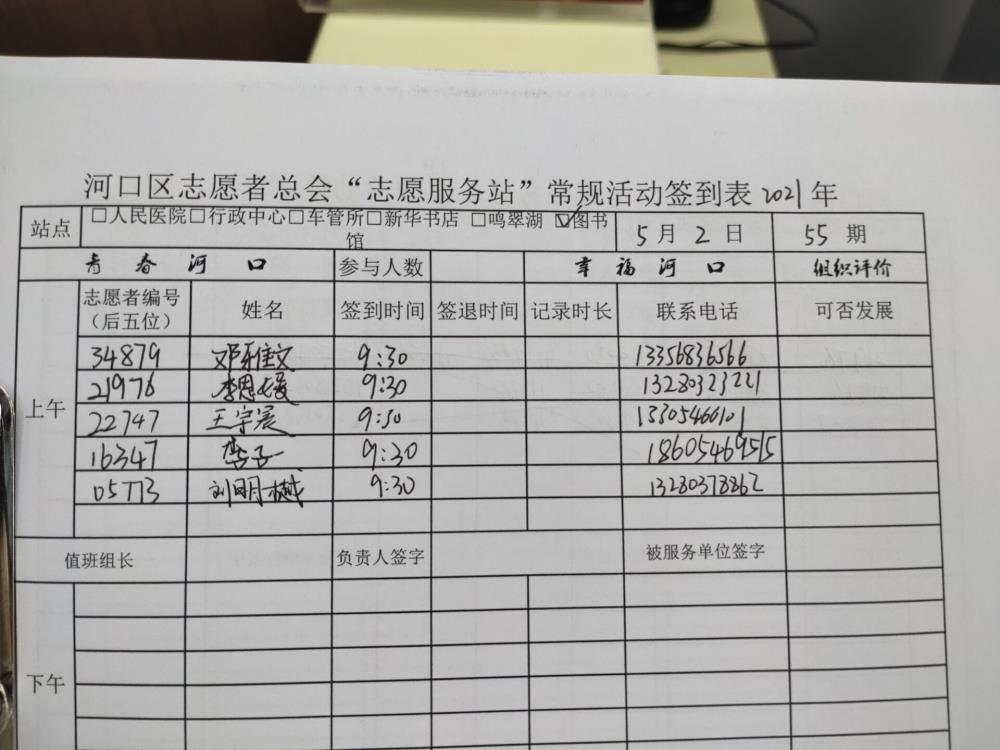 河口区志愿者总会“志愿服务站”常规活动签到表2021年
站点 □人民医院□行政中心□车管所□新华书店 □鸣翠湖 ☑图书馆 5月2日 55期
青春河口 参与人数 幸福河口 组织评价
上午 志愿者编号（后五位） 姓名 签到时间 签退时间 记录时长 联系电话 可否发展
34879 邓雅文 9:30 13356836566
21976 李思媛 9:30 13280323221
22747 王宇宸 9:30 13305466101
16347 李子一 9:30 18605469515
05773 刘明樾 9:30 13280378862
值班组长 负责人签字 被服务单位签字
下午